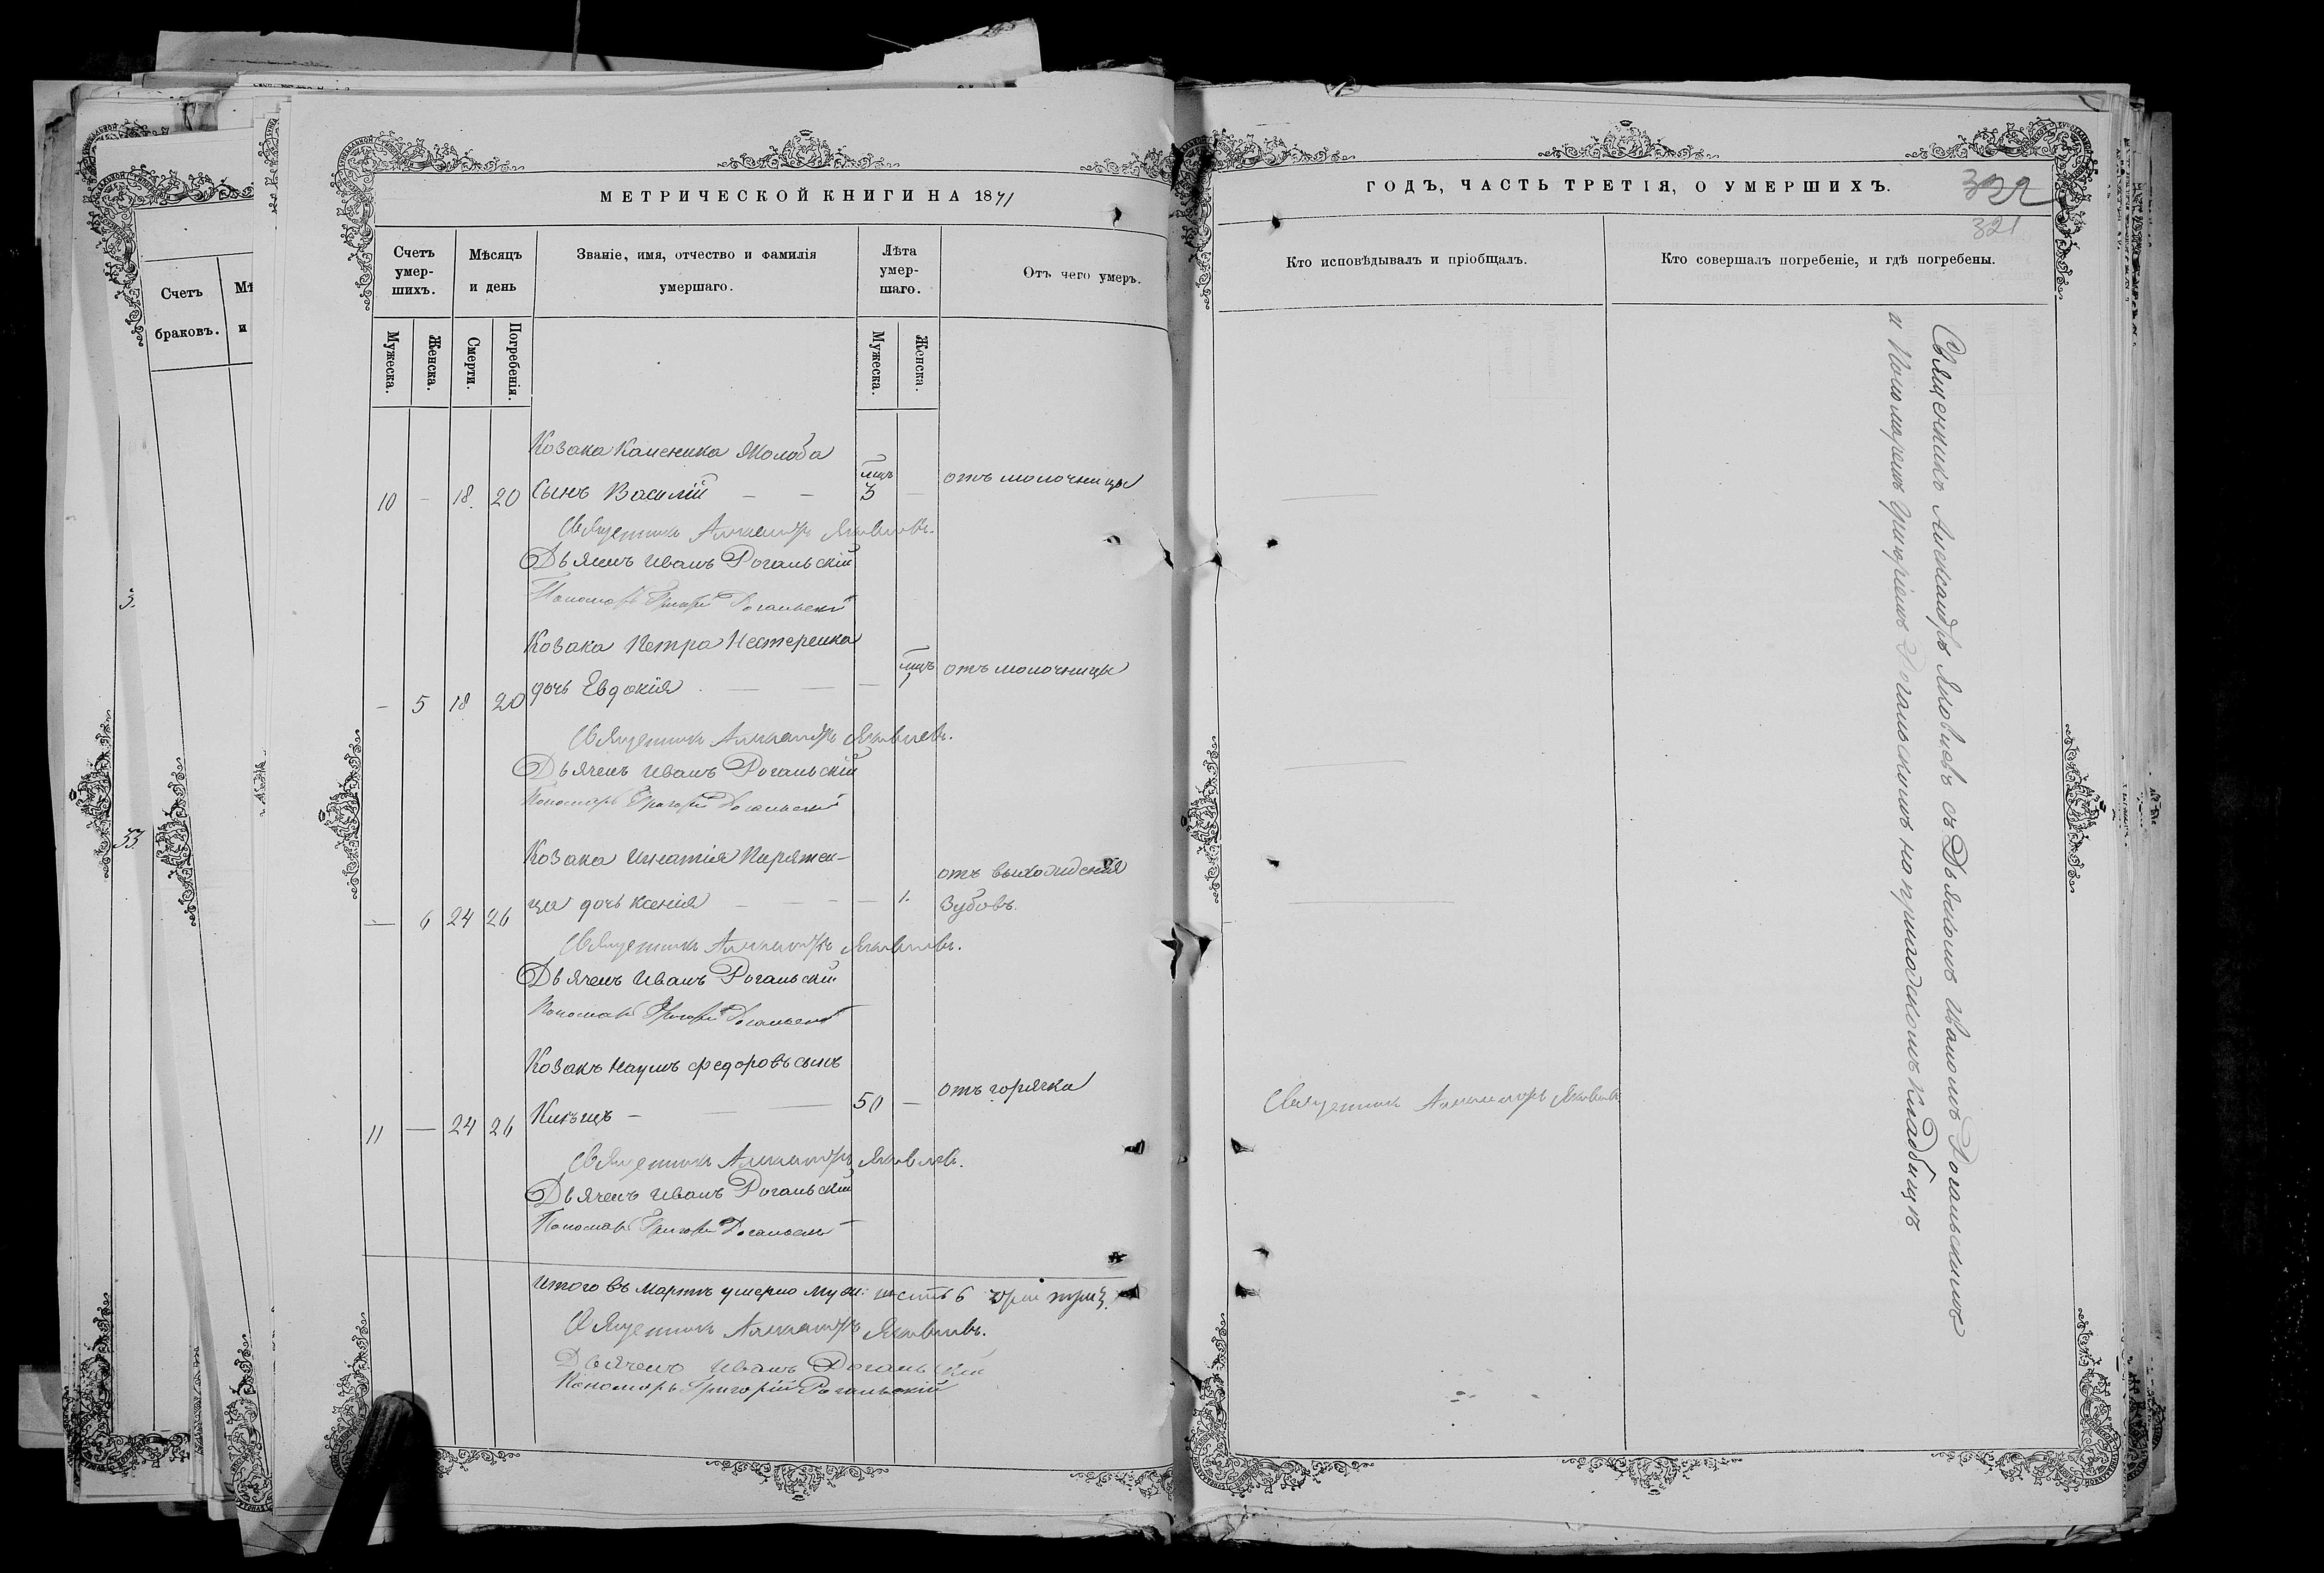 МЕТРИЧЕСКОЙ КНИГИ НА 1871
Счетъ умер-шихъ.
Мѣсяцъ и день
Званіе, имя, отчество и фамилія умершаго.
Лѣта умер-шаго.
Отъ чего умеръ.
Мужеска.
Женска.
Смерти.
Погребенія.
Мужеска.
Женска.
Козака Каленика Жолоба
10 - 18. 20 Сынъ Василій - - мцъ 3 - отъ молочницы
Священникъ Александръ Яковлевъ.
Дьячекъ Иванъ Рогальскій
Пономарь Григорій Рогальскій
Козака Петра Нестеренка
- 5 18 20 дочь Евдокія - - - мцъ 1 отъ молочницы
Священникъ Александръ Яковлевъ.
Дьячекъ Иванъ Рогальскій
Пономарь Григорій Рогальскій
Козака Игнатія Пирятен-
- 6 24 26 ца дочь Ксенія - - - - 1. отъ выхожденія зубовъ.
Священникъ Александръ Яковлевъ.
Дьячекъ Иванъ Рогальскій
Пономарь Григорій Рогальскій
Козакъ Наумъ Федоровъ сынъ
11 - 24 26 - - - 50 - отъ горячки
Священникъ Александръ Яковлевъ.
Дьячекъ Иванъ Рогальскій
Пономарь Григорій Рогальскій
Итого въ Мартѣ умерло муж: шесть 6
Священникъ Александръ Яковлевъ.
Дьячекъ Иванъ Рогальскій
Пономарь Григорій Рогальскій
ГОДЪ, ЧАСТЬ ТРЕТІЯ, О УМЕРШИХЪ.
322
321
Кто исповѣдывалъ и пріобщалъ.
Кто совершалъ погребеніе, и гдѣ погребены.
Священникъ Александръ Яковлевъ
Священникъ Александръ Яковлевъ съ Дьячкомъ Иваномъ Рогальскимъ
и Пономаремъ Григоріемъ Рогальскимъ на приходскомъ Кладбищѣ
Счетъ браковъ.
Мѣ
и
3.
33